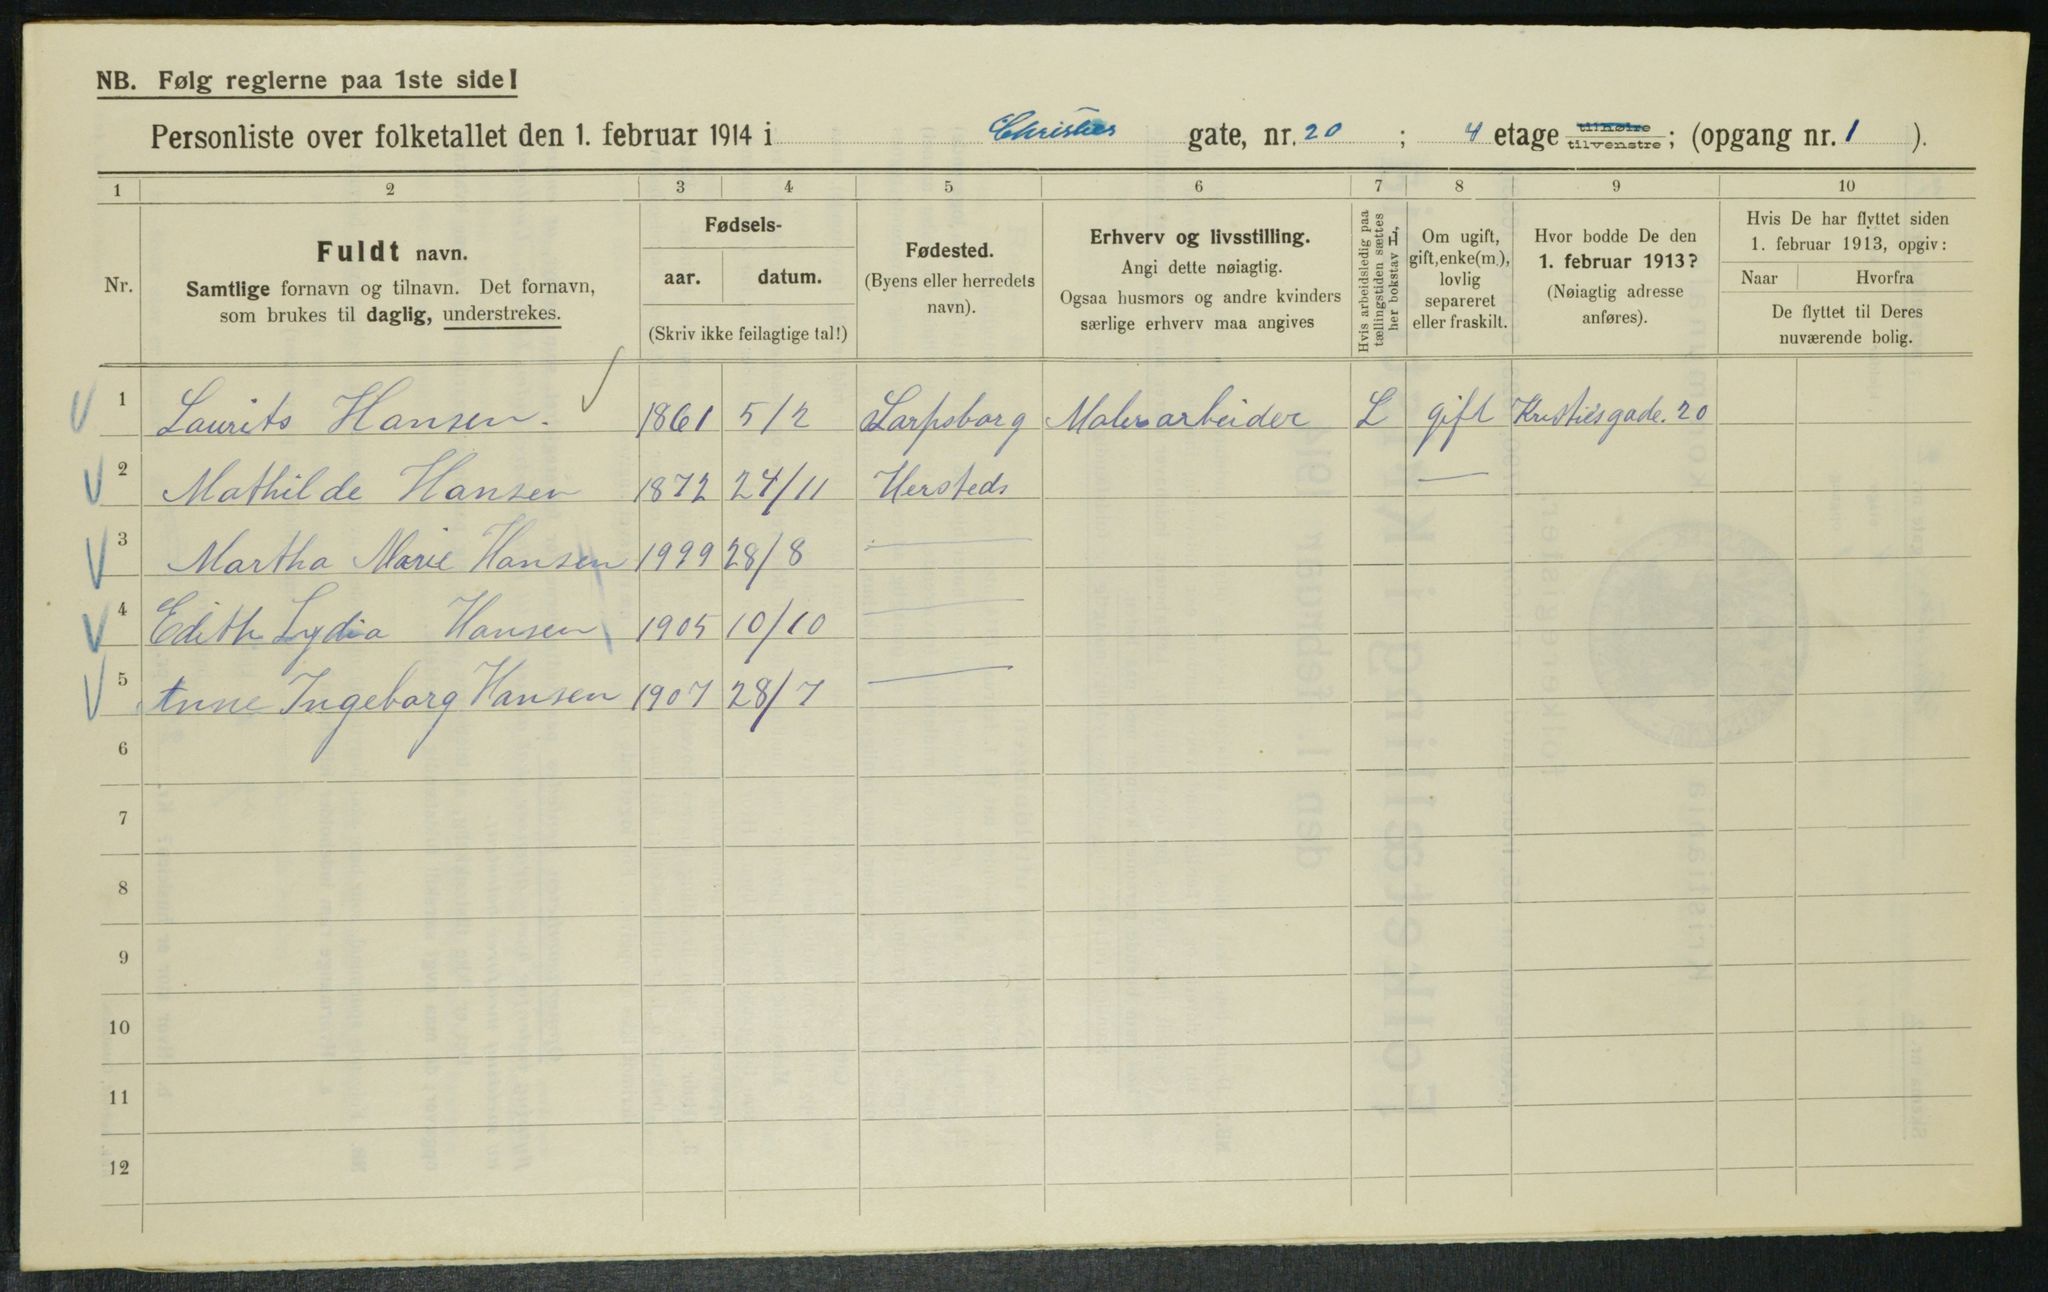 NB. Følg reglerne paa 1ste side!
Personliste over folketallet den 1. februar 1914 i Christies gate, nr. 20 ; 4 etage tilhøire tilvenstre ; (opgang nr. 1 ).
1 2 3 4 5 6 7 8 9 10
Nr.
Fuldt navn.
Samtlige fornavn og tilnavn. Det fornavn,
som brukes til daglig, understrekes.
Fødsels-
aar. datum.
(Skriv ikke feilagtige tal!)
Fødested.
(Byens eller herredets
navn).
Erhverv og livsstilling.
Angi dette nøiagtig.
Ogsaa husmors og andre kvinders
særlige erhverv maa angives
Hvis arbeidsledig paa
tællingstiden sættes
her bokstav L.
Om ugift,
gift, enke(m.),
lovlig
separeret
eller fraskilt.
Hvor bodde De den
1. februar 1913?
(Nøiagtig adresse
anføres).
Hvis De har flyttet siden
1. februar 1913, opgiv:
Naar Hvorfra
De flyttet til Deres
nuværende bolig.
1 Laurits Hansen. 1861 5/2 Sarpsborg Malerarbeider L gift Kristiesgade. 20
2 Mathilde Hansen 1872 24/11 Hersteds —
3 Martha Marie Hansen 1999 28/8 —
4 Edith Lydia Hansen 1905 10/10 —
5 Anne Ingeborg Hansen 1907 28/7 —
6
7
8
9
10
11
12